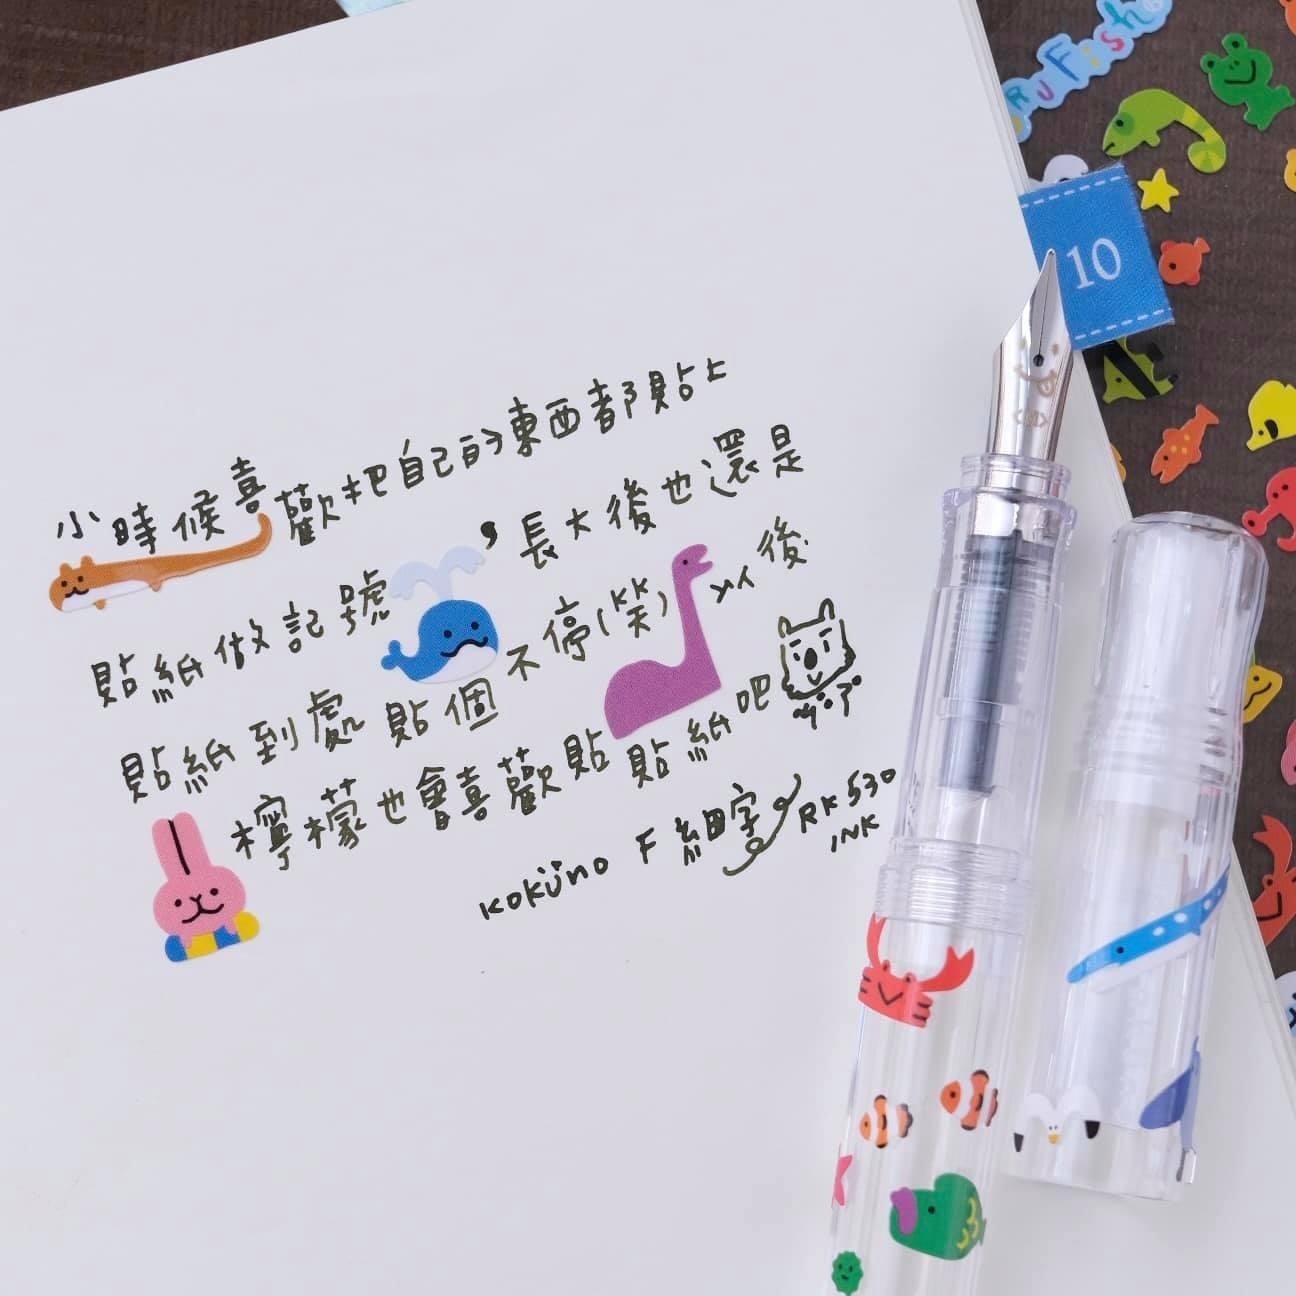 小時候喜歡把自己的東西都貼上
貼紙做記號，長大後也還是
貼紙到處貼個不停(笑) 以後
檸檬也會喜歡貼貼紙吧
kokuno F 細字
RK 530
INK
10
Fish